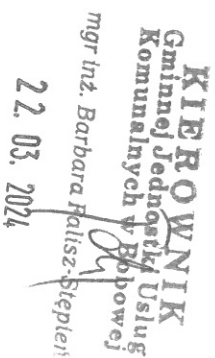 KIEROWNIK
Gminnej Jednostki Usług
Komunalnych w Bobowej
mgr inż. Barbara Palisz-Stępień
22. 03. 2024